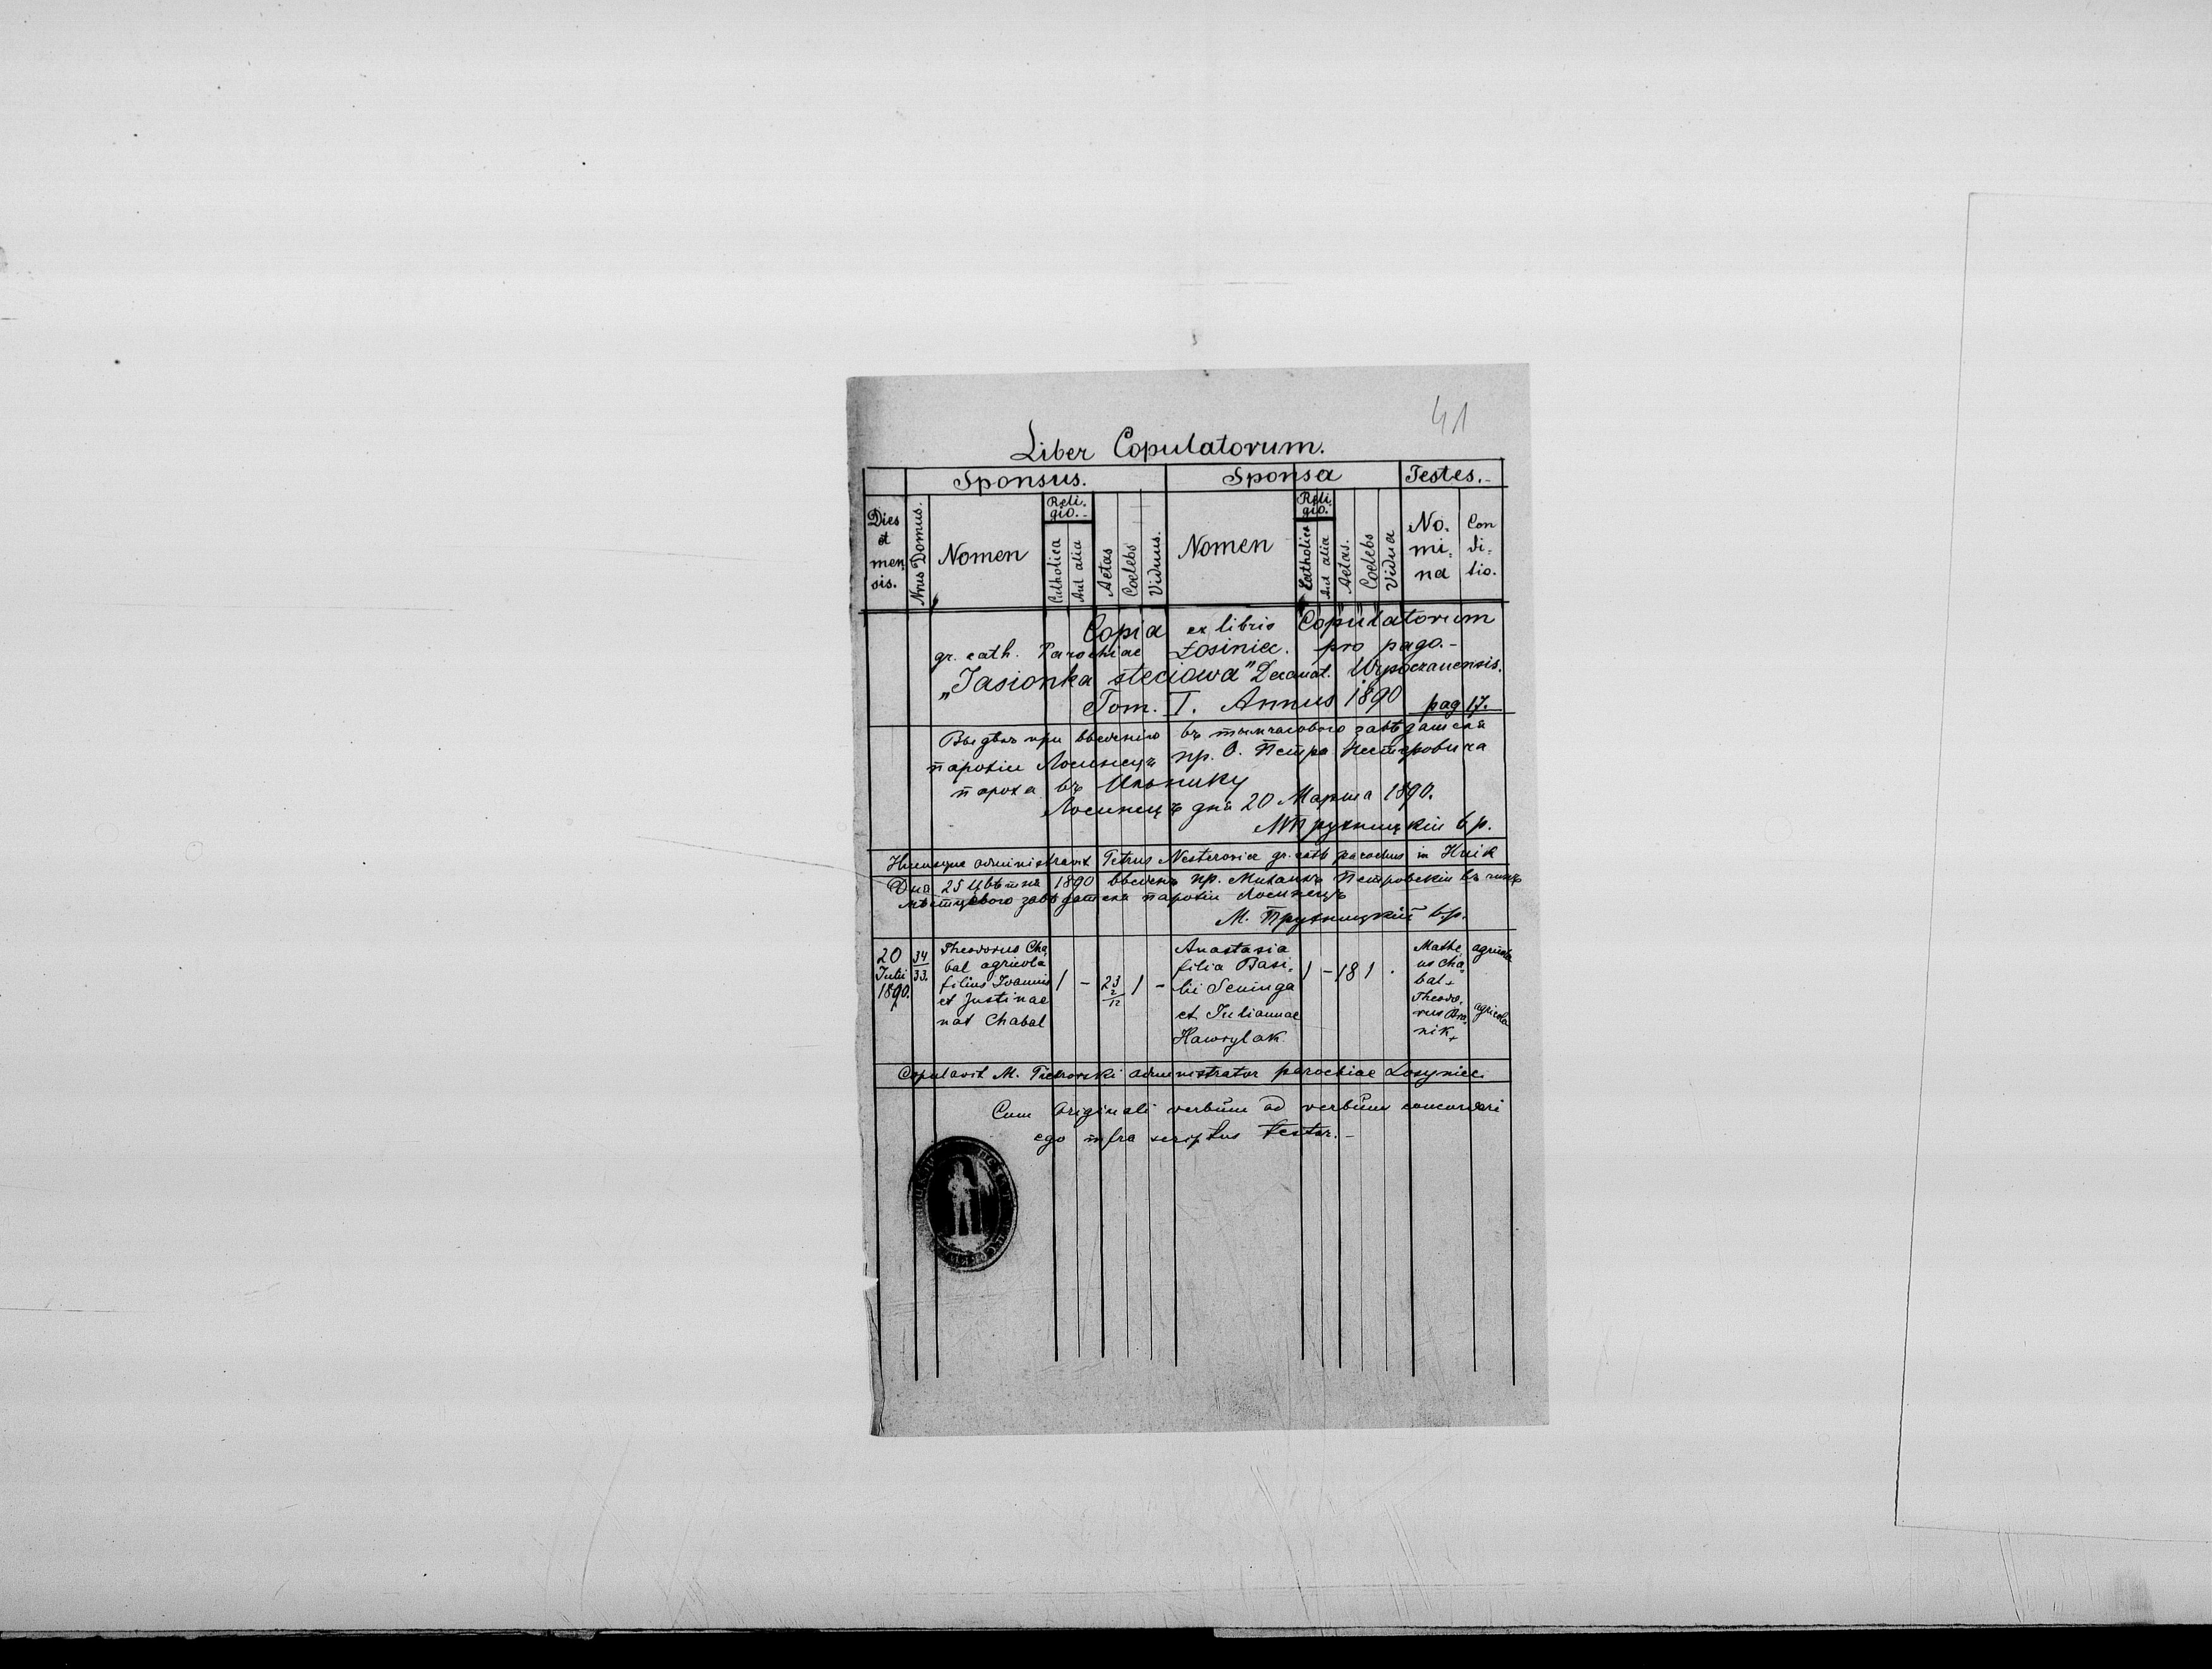 41
Liber Copulatorum.
Sponsus. Sponsa Testes.-
Dies et men. sis.
Nrus Domus.
Nomen
Reli. gio.-
Catholica
Aut alia
Aetas
Coelebs
Viduus.
Nomen
Reli. gio.
Catholica
Aut alia
Aetas.
Coelebs
Vidua
No. mi. na
Con di. tio.
Copia ex libris Copulatorum
gr. cath. Parochiae Łosiniec. pro pago.-
„Jasionka steciowa" Decanat. Wysoczanensis.
Tom. I. Annus 1890 pag 17.
при введенію въ завѣдателя
парохіи Лосинецъ пр. О. Петра Нестеровича
пароха въ
Лосинецъ дня 20 Марта 1890.
МПрухницкій в.р.
Hucusque administravit Petrus Nesterovicz gr. cath parochus in
Дня 25 Цвѣтня 1890 введенъ пр. Михаилъ Петровскій въ
завѣдателя парохіи Лосинецъ
М. Прухницкій в.р.
20 Julii 1890.
34
33.
Theodorus Cha
bal agricola
filius Ioannis
et Justinae
nat Chabal
1 - 23 2/12 1 -
Anastasia
filia Basi.
lii Seninga
et Juliannae
Hawrylak.
1 - 18 1 .
Mathe
us Cha.
bal +
Theodo.
rus
nik +
agricola
agricola
Copulavit M. Pietrowski administrator parochiae Losyniec.
Cum originali verbum ad verbum concordari
ego infra scriptus testor.-